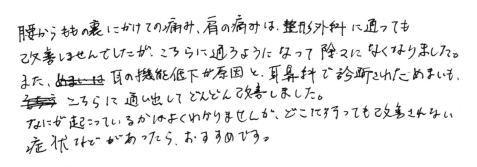 腰からももの裏にかけての痛み、肩の痛みは、整形外科に通っても
改善しませんでしたが、こちらに通うようになって除々になくなりました。
また、耳の機能低下が原因と、耳鼻科で診断されためまいも、
こちらに通い出してどんどん改善しました。
なにが起こっているかはよくわかりませんが、どこに行っても改善されない
症状などがあったら、おすすめです。